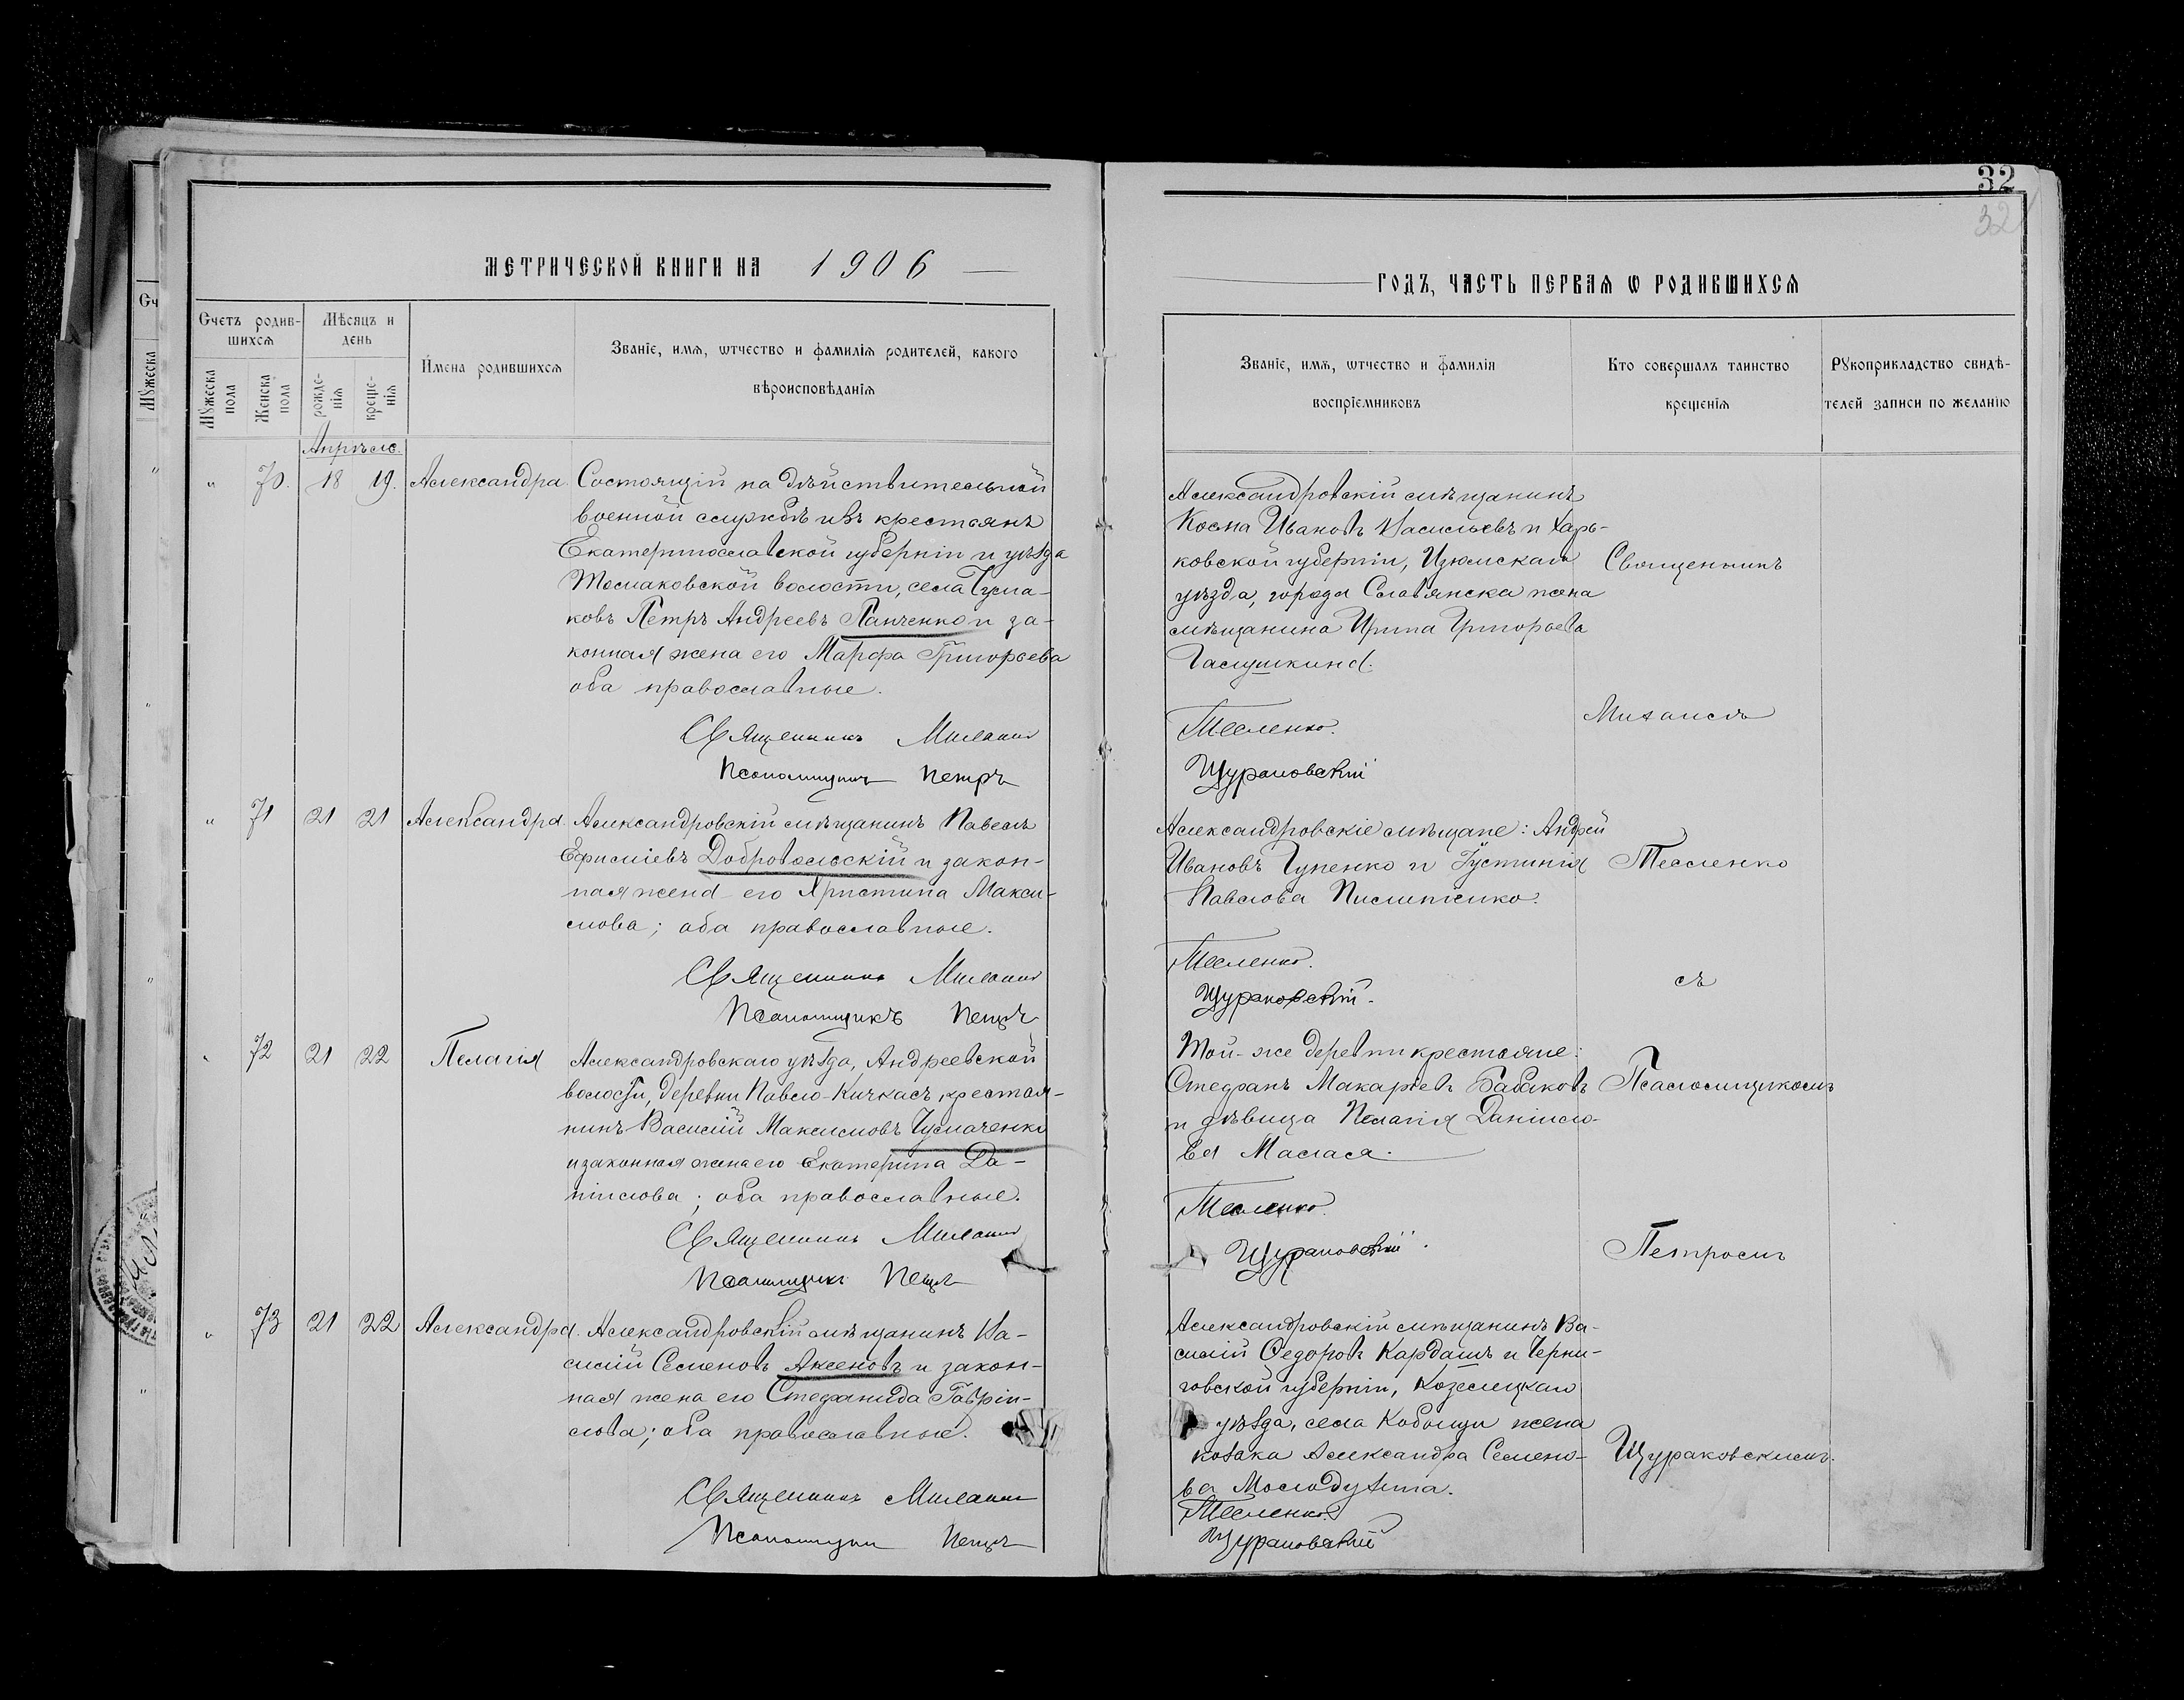 32
32
МЕТРИЧЕСКОЙ КНИГИ НА 1906
ГОДЪ, ЧАСТЬ ПЕРВАЯ Ѡ РОДИВШИХСЯ
Счетъ родив-
шихся
Мужеска
пола
Женска
пола
Мѣсяцъ и
день
рожде-
нія
креще-
нія
Имена родившихся
Званіе, имя, ѿтчество и фамилія родителей, какого
вѣроисповѣданія
Званіе, имя, ѿтчество и фамилія
воспріемниковъ
Кто совершалъ таинство
крещенія
Рꙋкоприкладство свидѣ-
телей записи по желанію
Апрѣль.
" 70. 18 19. Александра.
Состоящій на дѣйствительной
военной службѣ изъ крестьянъ
Екатеринославской губерніи и уѣзда
волости, села
ковъ Петръ Андреевъ Панченко и за-
конная жена его Марфа Григорьева
оба православные.
Священникъ Михаилъ
Псаломщикъ Петръ
Александровскій мѣщанинъ
Косма Ивановъ Васильевъ и Харь-
ковской губерніи, Изюмскаго
уѣзда, города Славянска жена
мѣщанина Ирина Григорьева
Галушкина.
Тесленко.
Щураковскій
Священникъ
Михаилъ
" 71 21 21 Александра.
Александровскій мѣщанинъ Павелъ
Ефиміевъ Добровольскій и закон-
ная жена его Христина Макси-
мова; оба православные.
Священникъ Михаилъ
Псаломщикъ Петръ
Александровскіе мѣщане: Андрей
Ивановъ Чупенко и Іустинія
Павлова Письменко.
Тесленко.
Щураковскій.
Тесленко
съ
" 72 21 22 Пелагія
Александровскаго уѣзда, Андреевской
волости, деревни Павло-Кичкасъ, крестья-
нинъ Василій Максимовъ Чумаченко
и законная жена его Екатерина Да-
ніилова; оба православные.
Священникъ Михаилъ
Псаломщикъ Петръ
Той-же деревни крестьяне:
Стефанъ Макаріевъ Бабаковъ
и дѣвица Пелагія Даніило-
ва Маслася.
Тесленко.
Щураковскій.
Псаломщикомъ
Петромъ
" 73 21 22 Александра.
Александровскій мѣщанинъ Ва-
силій Семеновъ Аксеновъ и закон-
ная жена его Стефанида Гавріи-
лова; оба православные.
Священникъ Михаилъ
Псаломщикъ Петръ
Александровскій мѣщанинъ Ва-
силій Федоровъ Кардашъ и Черни-
говской губерніи, Козелецкаго
уѣзда, села Кобыжи жена
козака Александра Семено-
ва Молодухина.
Тесленко.
Щураковскій
Щураковскимъ.